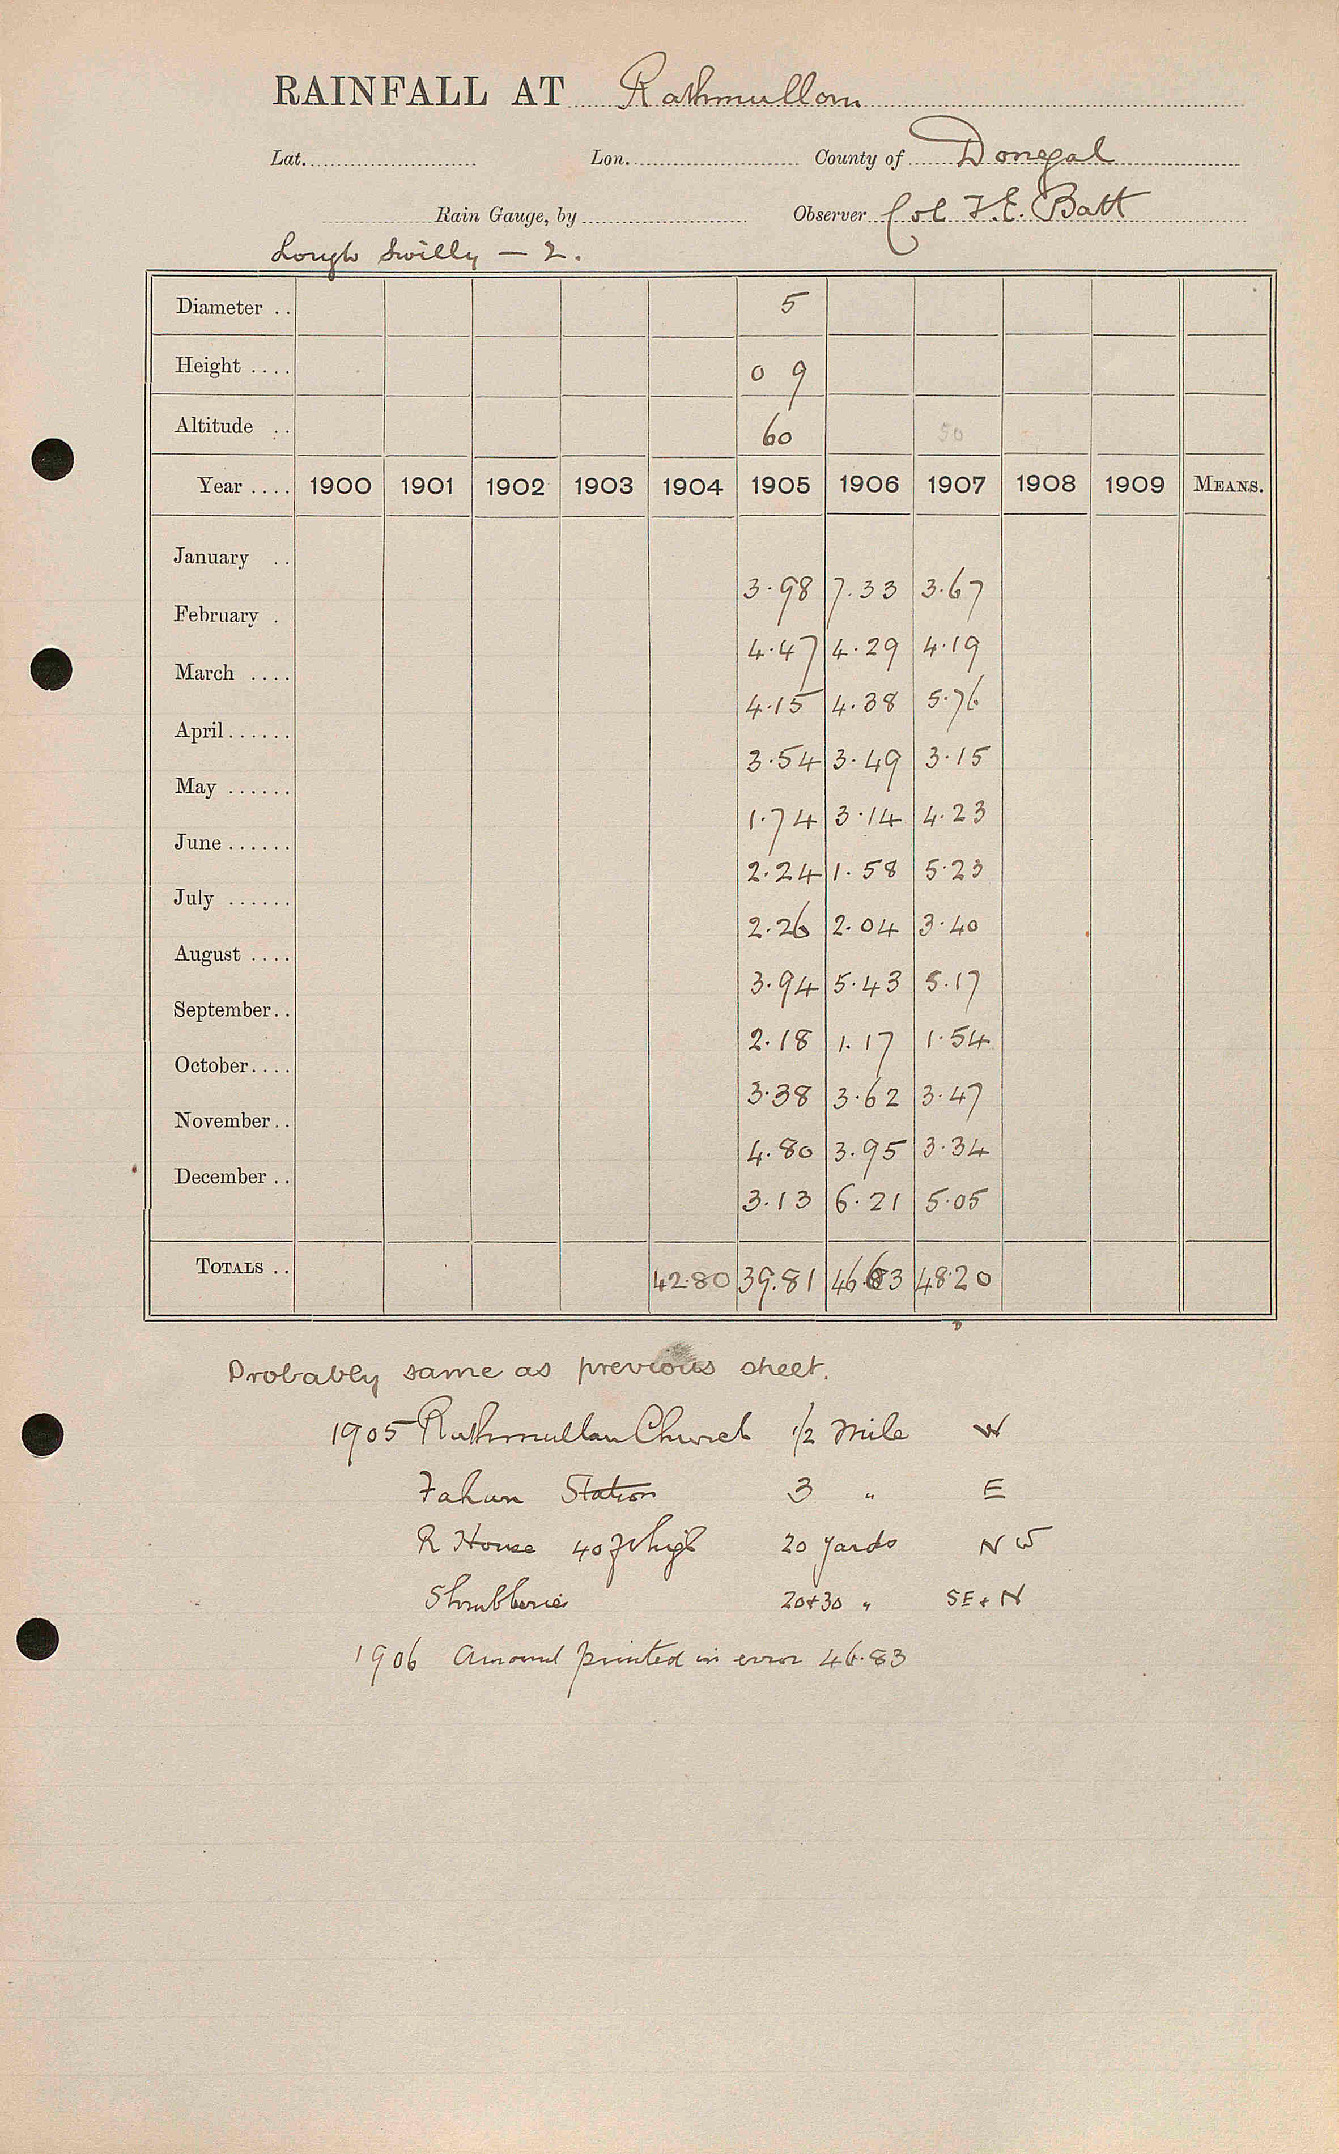 RAINFALL AT Rathmullan
Lat. Lon. County of Donegal
Rain Gauge, by Observer Col T. E. Batt
Lough Swilly — 2.
Diameter .. 5
Height .... 0 9
Altitude .. 60 50
Year .... 1900 1901 1902 1903 1904 1905 1906 1907 1908 1909 MEANS.
January ..
3.98 7.33 3.67
February .
4.47 4.29 4.19
March ....
4.15 4.38 5.76
April ......
3.54 3.49 3.15
May ......
1.74 3.14 4.23
June ......
2.24 1.58 5.23
July ......
2.26 2.04 3.40
August ....
3.94 5.43 5.17
September ..
2.18 1.17 1.54
October ....
3.38 3.62 3.47
November ..
4.80 3.95 3.34
December ..
3.13 6.21 5.05
TOTALS .. 42.80 39.81 46.63 48.20
Probably same as previous sheet.
1905 Rathmullan Church 1/2 Mile W
Fahan Station 3 " E
R House 40 ft high 20 yards NW
Shrubberies 20+30 " SE + N
1906 Amount printed in error 46.83